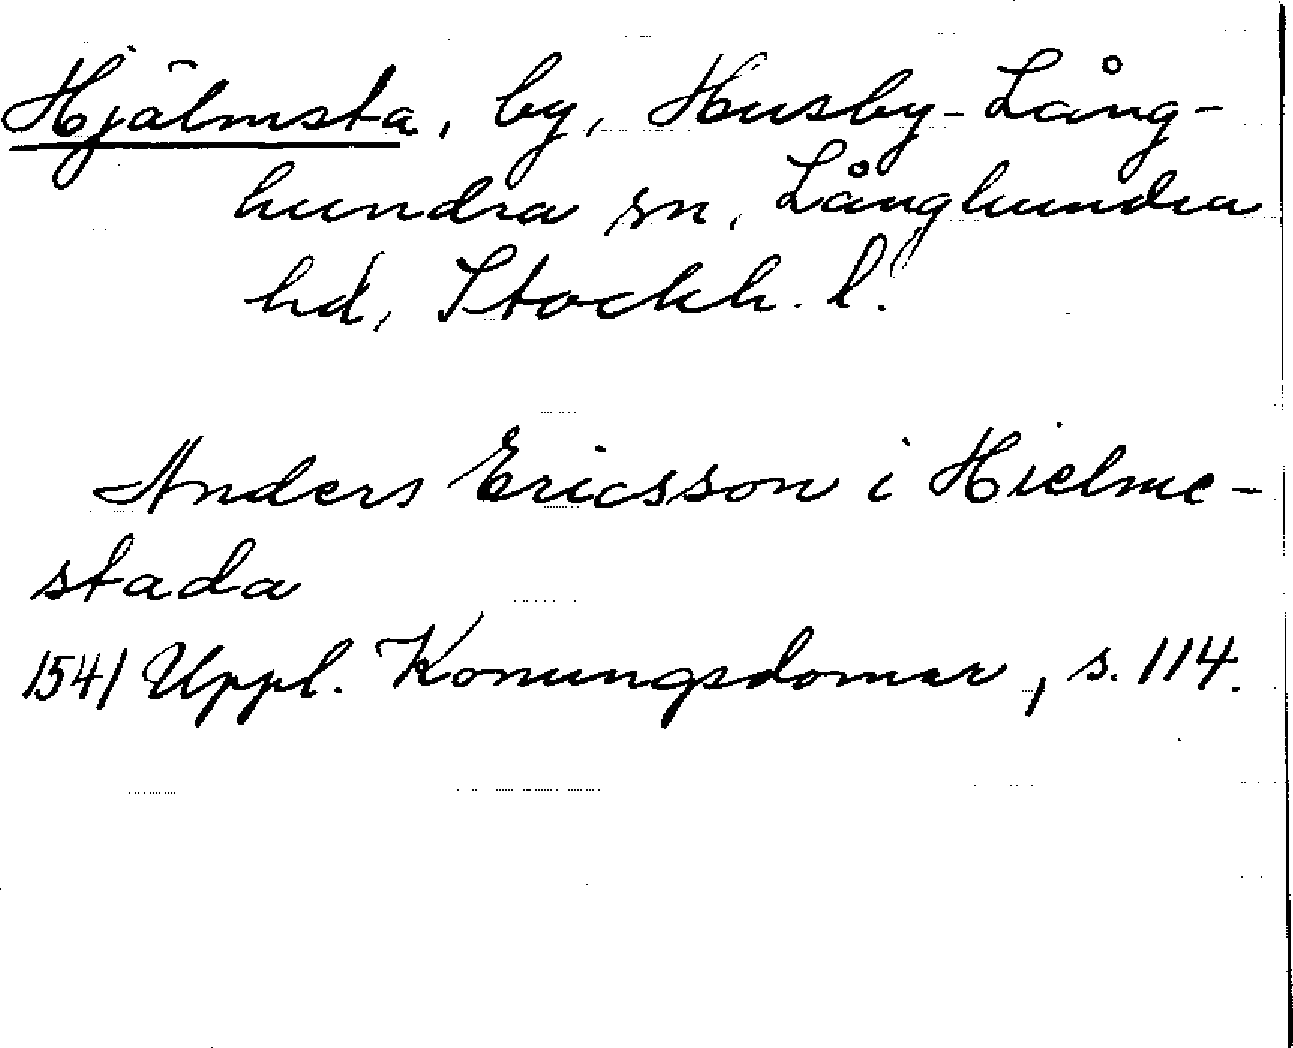 Hjälmsta, by, Husby-Lång-
hundra sn, Långhundra
hd, Stockh. l.
Anders Ericsson i Hielme-
stada
1541 Uppl. Konungsdomar, s. 114.